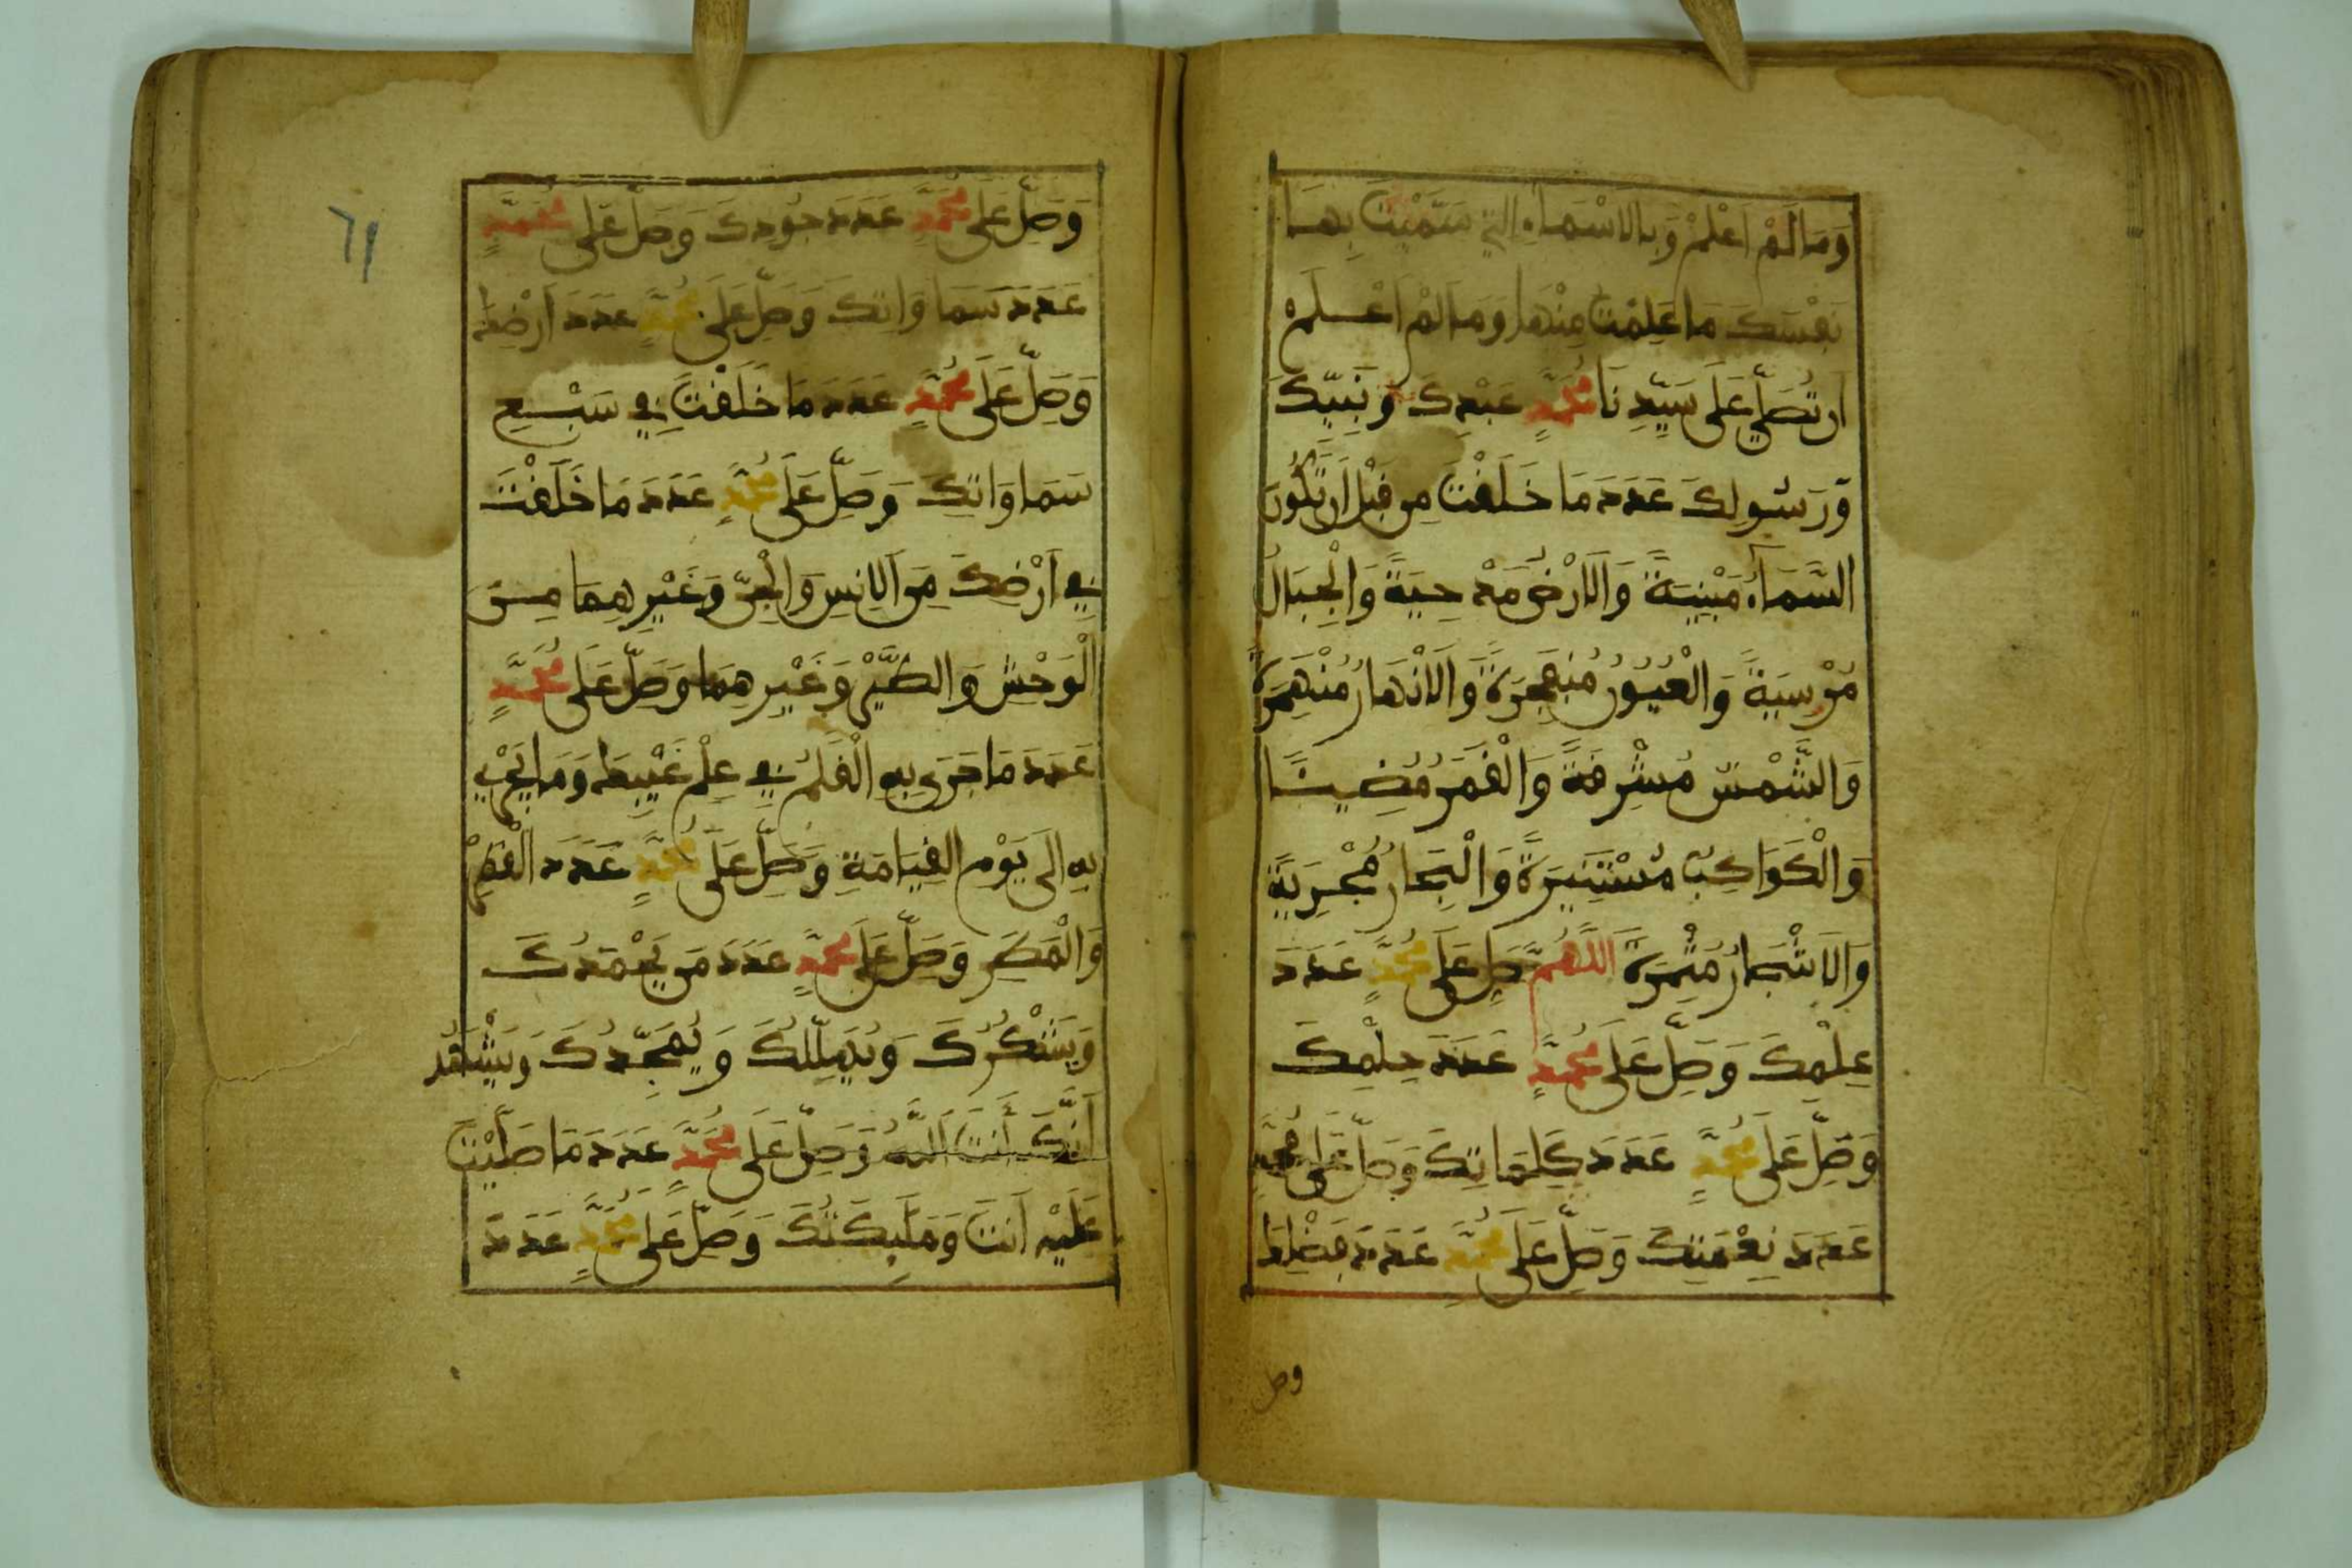 وَمَا لَمْ اَعْلَمْ وَبِالَاسْمَاءِ التِي سَمَّيْتَ بِهَا
نَفْسَكَ مَا عَلِمْتُ مِنْهَا وَمَا لَمْ اَعْلَمْ
اَن تُصَلِّيَ عَلَى سَيِّدِنَا مُحَمَّدٍ عَبْدِكَ وَنَبِيِّكَ
وَرَسُولِكَ عَدَدَ مَا خَلَقْتَ مِن قَبْلِ أَن تَكُونَ
السَّمَاءُ مَبْنِيَةً وَالَارْضُ مَدْحِيَةً وَالْجِبَالُ
مُرْسِيَةً وَالْعُيُونُ مُنفَجِرَةً وَالَانْهَارُ مُنْهَمِرَةً
وَالشَّمْسُ مُشْرِقَةً وَالْقَمَرُ مُضِيئًا
وَالْكَوَاكِبُ مُسْتَنِيرَةً وَالْبِحَارُ مُجْرِيَةً
وَالَاشْجَارُ مُثْمِرَةً اَللَّهُمَّ صَلِّ عَلَى مُحَمَّدٍ عَدَدَ
عِلْمِكَ وَصَلِّ عَلَى مُحَمَّدٍ عَدَدَ حِلْمِكَ
وَصَلِّ عَلَى مُحَمَّدٍ عَدَدَ كَلِمَاتِكَ وَصَلِّ عَلَى مُحَمَّدٍ
عَدَدَ نِعْمَتِكَ وَصَلِّ عَلَى مُحَمَّدٍ عَدَدَ فَضْلِكَ
وصل
٦١
وَصَلِّ عَلَى مُحَمَّدٍ عَدَدَ جُودِكَ وَصَلِّ عَلَى مُحَمَّدٍ
عَدَدَ سَمَاوَاتِكَ وَصَلِّ عَلَى مُحَمَّدٍ عَدَدَ اَرْضِكَ
وَصَلِّ عَلَى مُحَمَّدٍ عَدَدَ مَا خَلَقْتَ فِي سَبْعِ
سَمَاوَاتِكَ وَصَلِّ عَلَى مُحَمَّدٍ عَدَدَ مَا خَلَقْتَ
فِي اَرْضِكَ مِنَ الِانسِ وَالْجِنِّ وَغَيْرِهِمَا مِنَ
الْوَحْشِ وَالطَّيْرِ وَغَيْرِهِمَا وَصَلِّ عَلَى مُحَمَّدٍ
عَدَدَ مَا جَرَى بِهِ الْقَلَمُ فِي عِلْمِ غَيْبِكَ وَمَا يَجْرِي
بِهِ اِلَى يَوْمِ الْقِيَامَةِ وَصَلِّ عَلَى مُحَمَّدٍ عَدَدَ الْقَطْرِ
وَالْمَطَرِ وَصَلِّ عَلَى مُحَمَّدٍ عَدَدَ مَن يَحْمَدُكَ
وَيَشْكُرُكَ وَيُهَلِّلُكَ وَيُمَجِّدُكَ وَيَشْهَدُ
اَنَّكَ أَنتَ اَللَّهُ وَصَلِّ عَلَى مُحَمَّدٍ عَدَدَ مَا صَلَّيْتَ
عَلَيْهِ اَنتَ وَمَلَٰئِكَتُكَ وَصَلِّ عَلَى مُحَمَّدٍ عَدَدَ